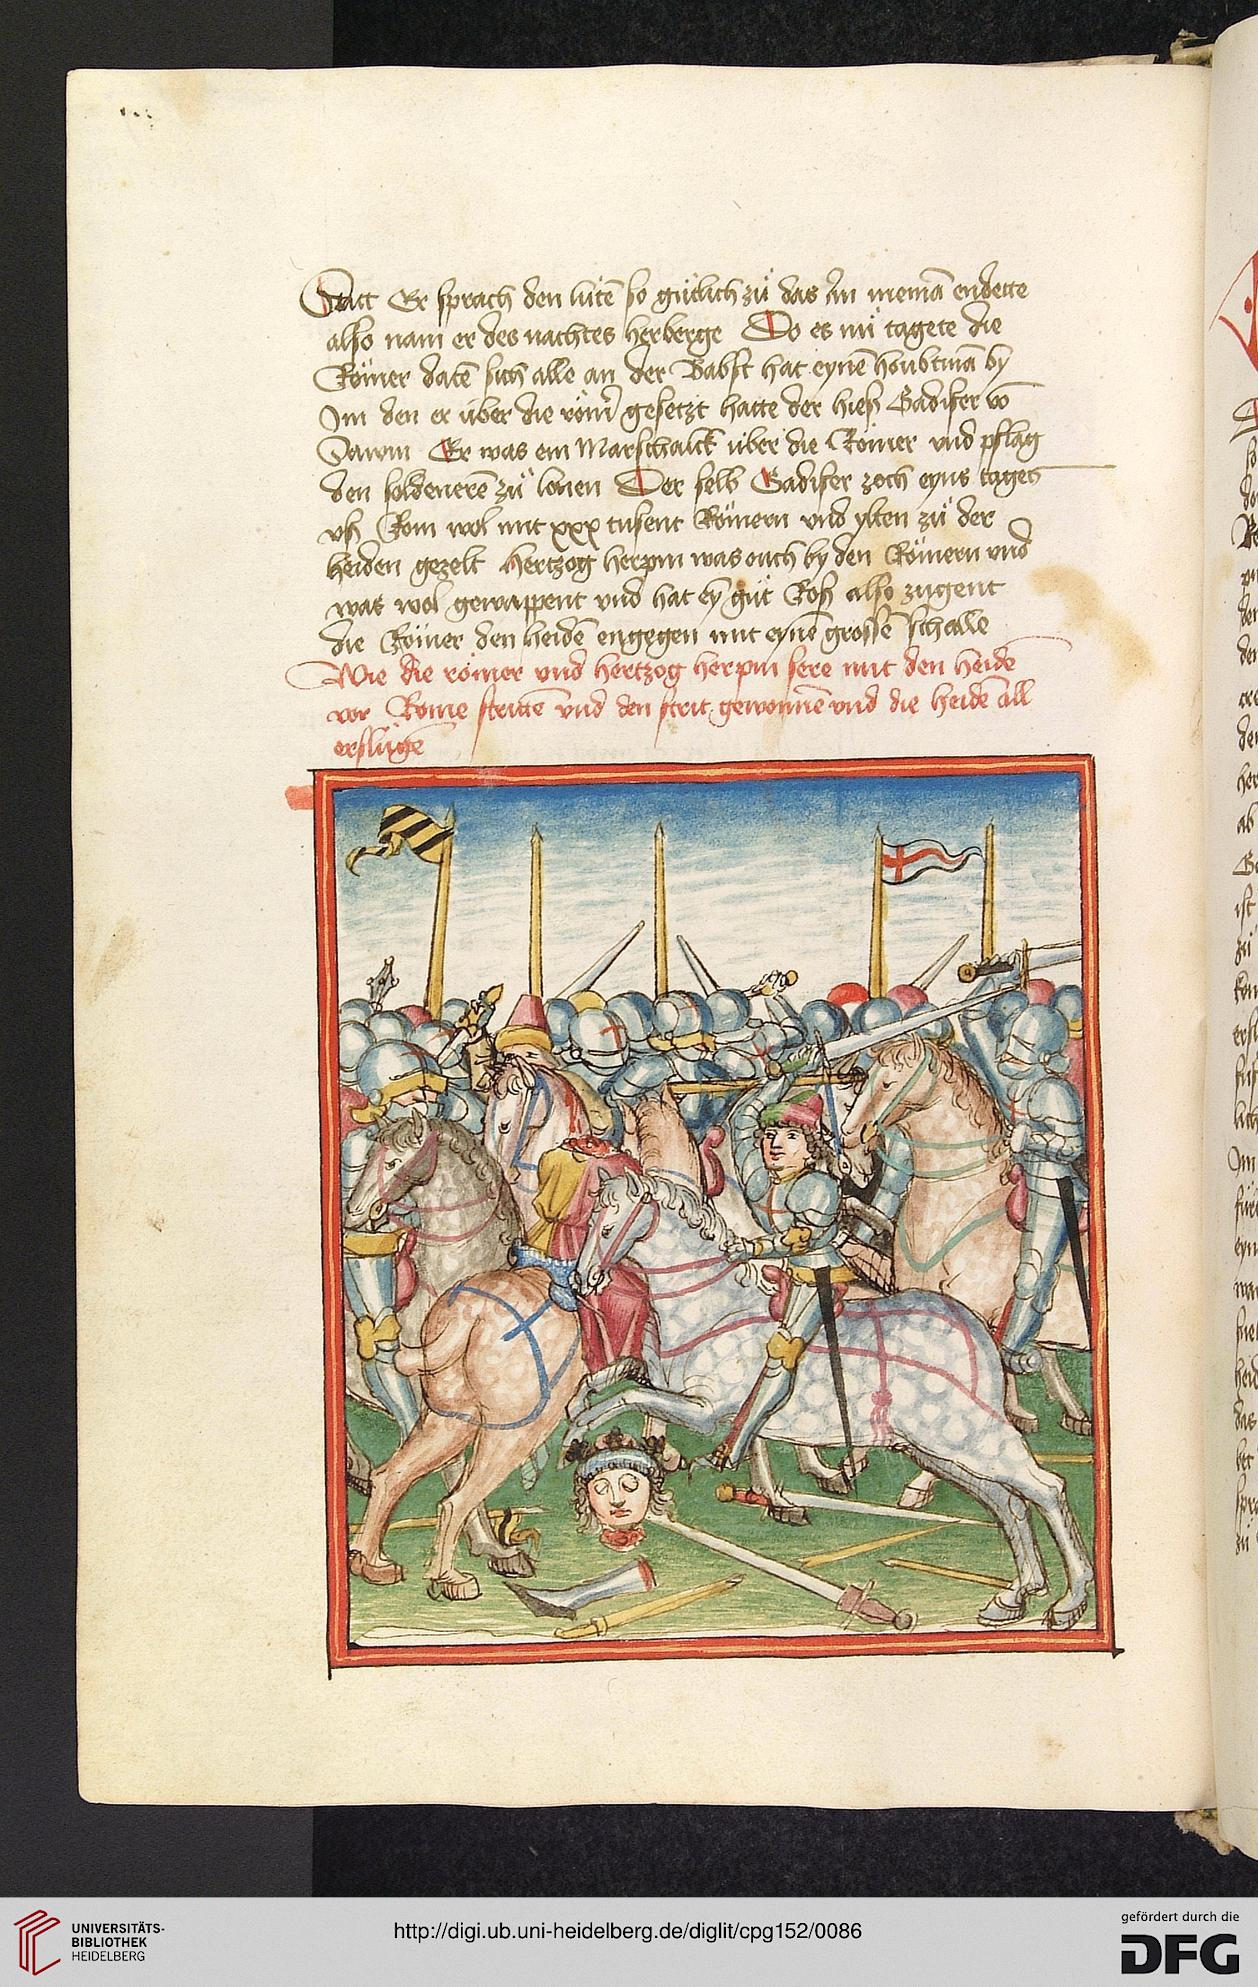 Statt Er sprach den lütē so gütlich zü das Jm niemā endette
also nam er des nachtes herberge Do es nu tagete die
Römer datē sich alle an der Babst hat eynē houbtmā by
Jm den er über die röm̄ gesetzt hatte der hieß Gadifer vō
Er was ein Marschalck über die Römer vnd pflag
den soldenerē zü lonen Der selb Gadifer zoch eyns tages
vß Rom wol mit xxx tusent Römern vnd ylten zü der
heiden gezelt hertzog herpin was ouch by den Römern vnd
was wol gewappent vnd hat ey güt Roß also zugent
die Römer den heidē engegen mit eynē grossē schalle
Wie die römer vnd hertzog herpin sere mit den heidē
vor Rome strittē vnd den strit gewonnē vnd die heidē all
erslügē
UNIVERSITÄTS-
BIBLIOTHEK
HEIDELBERG
http://digi.ub.uni-heidelberg.de/diglit/cpg152/0086
gefördert durch die
DFG